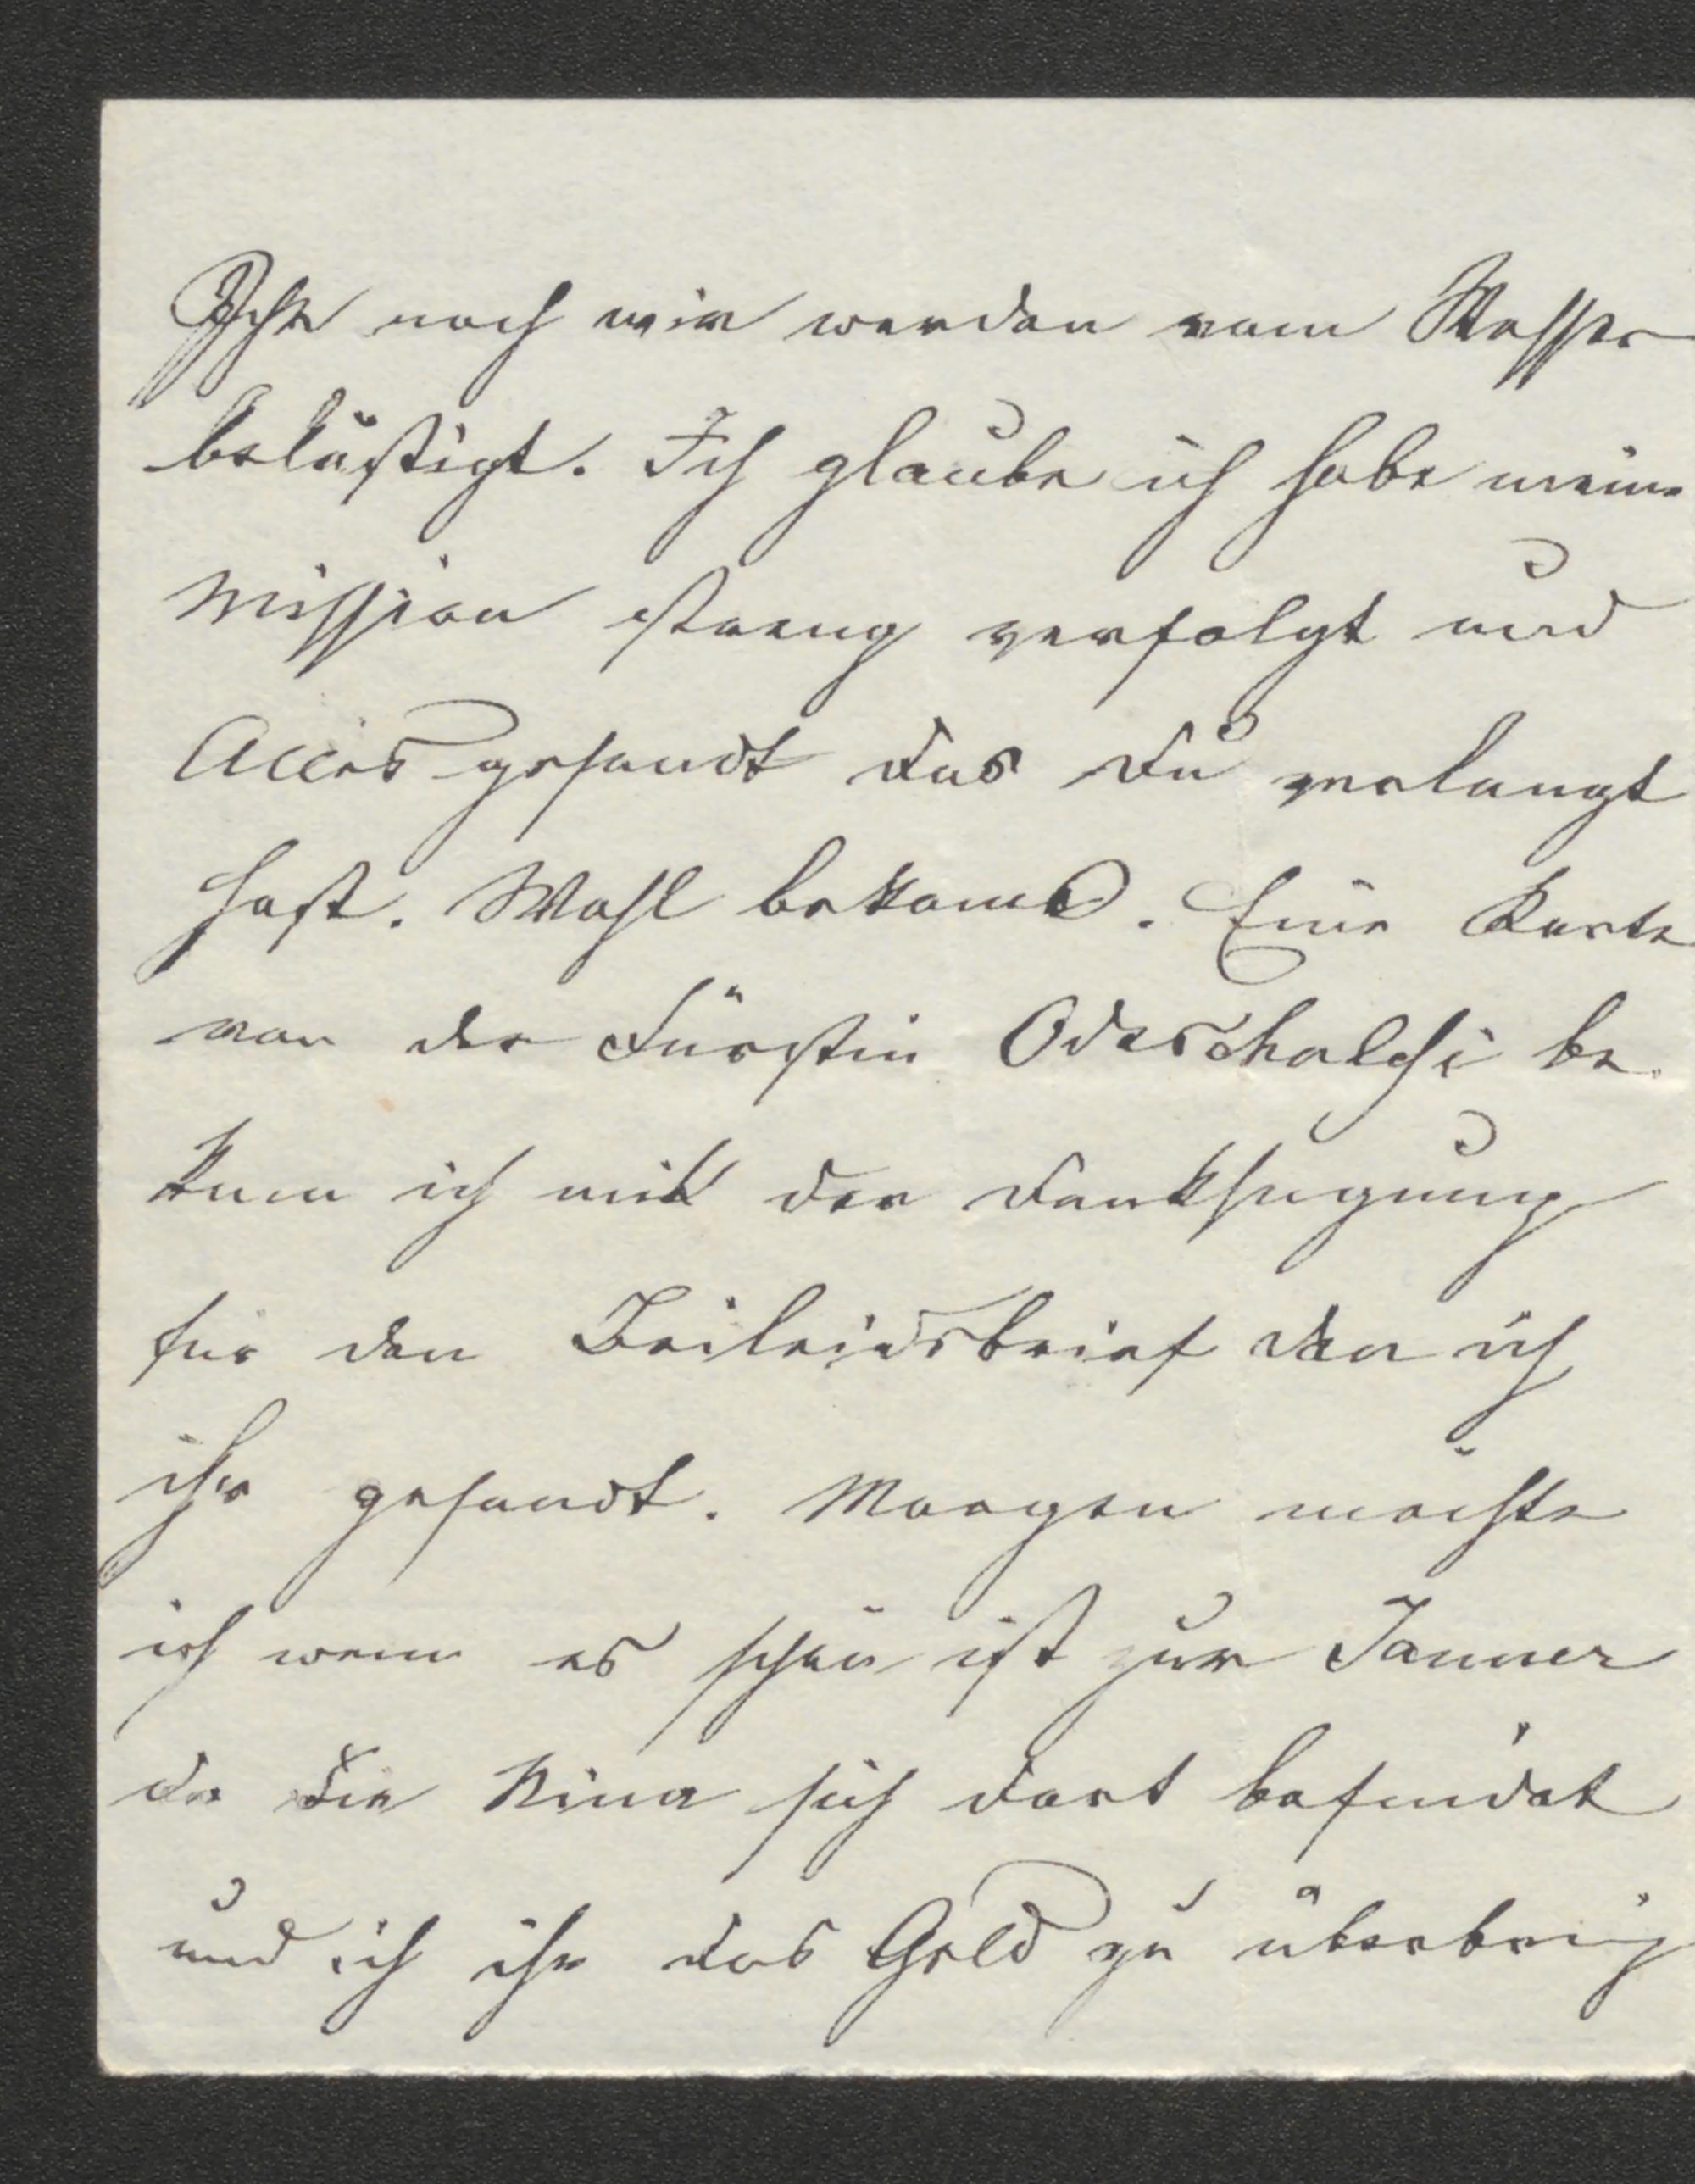 Ihr noch wir werden vom Wasser
belästigt. Ich glaube ich habe meine
Mission streng verfolgt und
Alles gesandt das Du verlangt
hast. Wohl bekoms. Eine Karte
von der Fürstin Odeschalchi be-
kam ich mit der Danksagung
für den Beileidsbrief den ich
ihr gesandt. Morgen möchte
ich wenn es schön ist zur Janner
da die Nina sich dort befindet
und ich ihr das Geld zu überbring